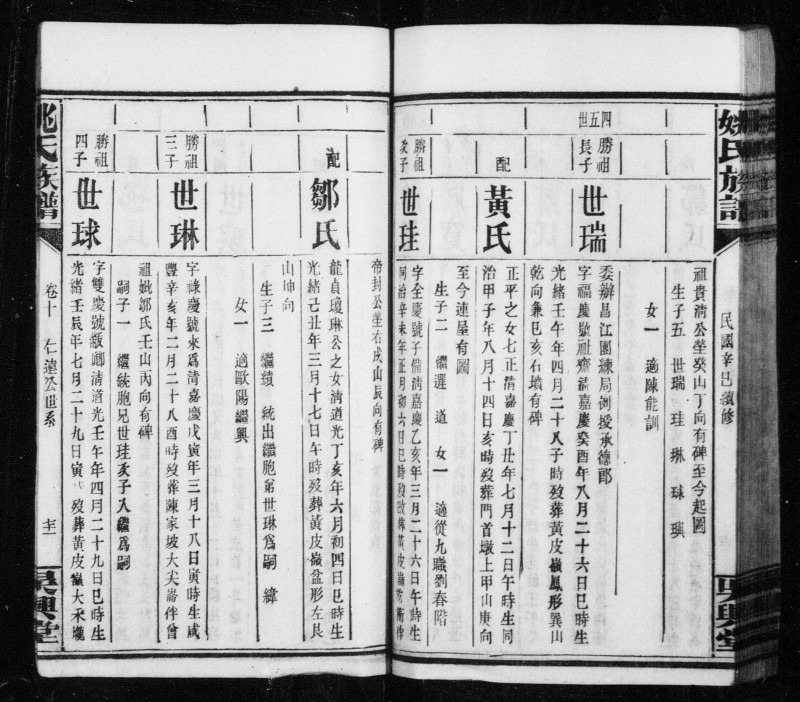 姚氏族譜
民國辛巳續修
吳興堂
四五世
祖貴清公塋癸山丁向有碑至今起圖
生子五 世瑞 珪 琳 球 璵
女一 適陳能訓
勝祖長子
世瑞
委辦昌江團練局例授承德郎
字福慶號祉齋清嘉慶癸酉年八月二十六日巳時生
光緒壬午年四月二十八子時歿葬黃皮嶺鳳形巽山
乾向兼巳亥石墳有碑
配
黃氏
正平之女七正清嘉慶丁丑年七月十二日午時生同
治甲子年八月十四日亥時歿葬門首墩上甲山庚向
至今連屋有圖
生子二 繼選 道 女一 適從九職劉春階
勝祖次子
世珪
字全慶號子備清嘉慶乙亥年三月二十六日午時生
同治辛未年正月初六日巳時歿
帝封公塋右戌山辰向有碑
配
鄒氏
龍貞瓊琳公之女清道光丁亥年六月初四日巳時生
光緒己丑年三月十七日午時歿葬黃皮嶺盆形左艮
山坤向
生子三 繼績 統出繼胞弟世琳為嗣 緯
女一 適歐陽繼興
勝祖三子
世琳
字祿慶號來為清嘉慶戊寅年三月十八日寅時生咸
豐辛亥年二月二十八酉時歿葬陳家坡大尖崙伴曾
祖妣鄒氏壬山丙向有碑
嗣子一 繼統胞兄世珪次子入繼為嗣
勝祖四子
世球
字雙慶號瓶卿清道光壬午年四月二十九日巳時生
光緒壬辰年七月二十九日寅時歿葬黃皮嶺大禾壠
姚氏族譜
卷十 仁達公世系
吳興堂